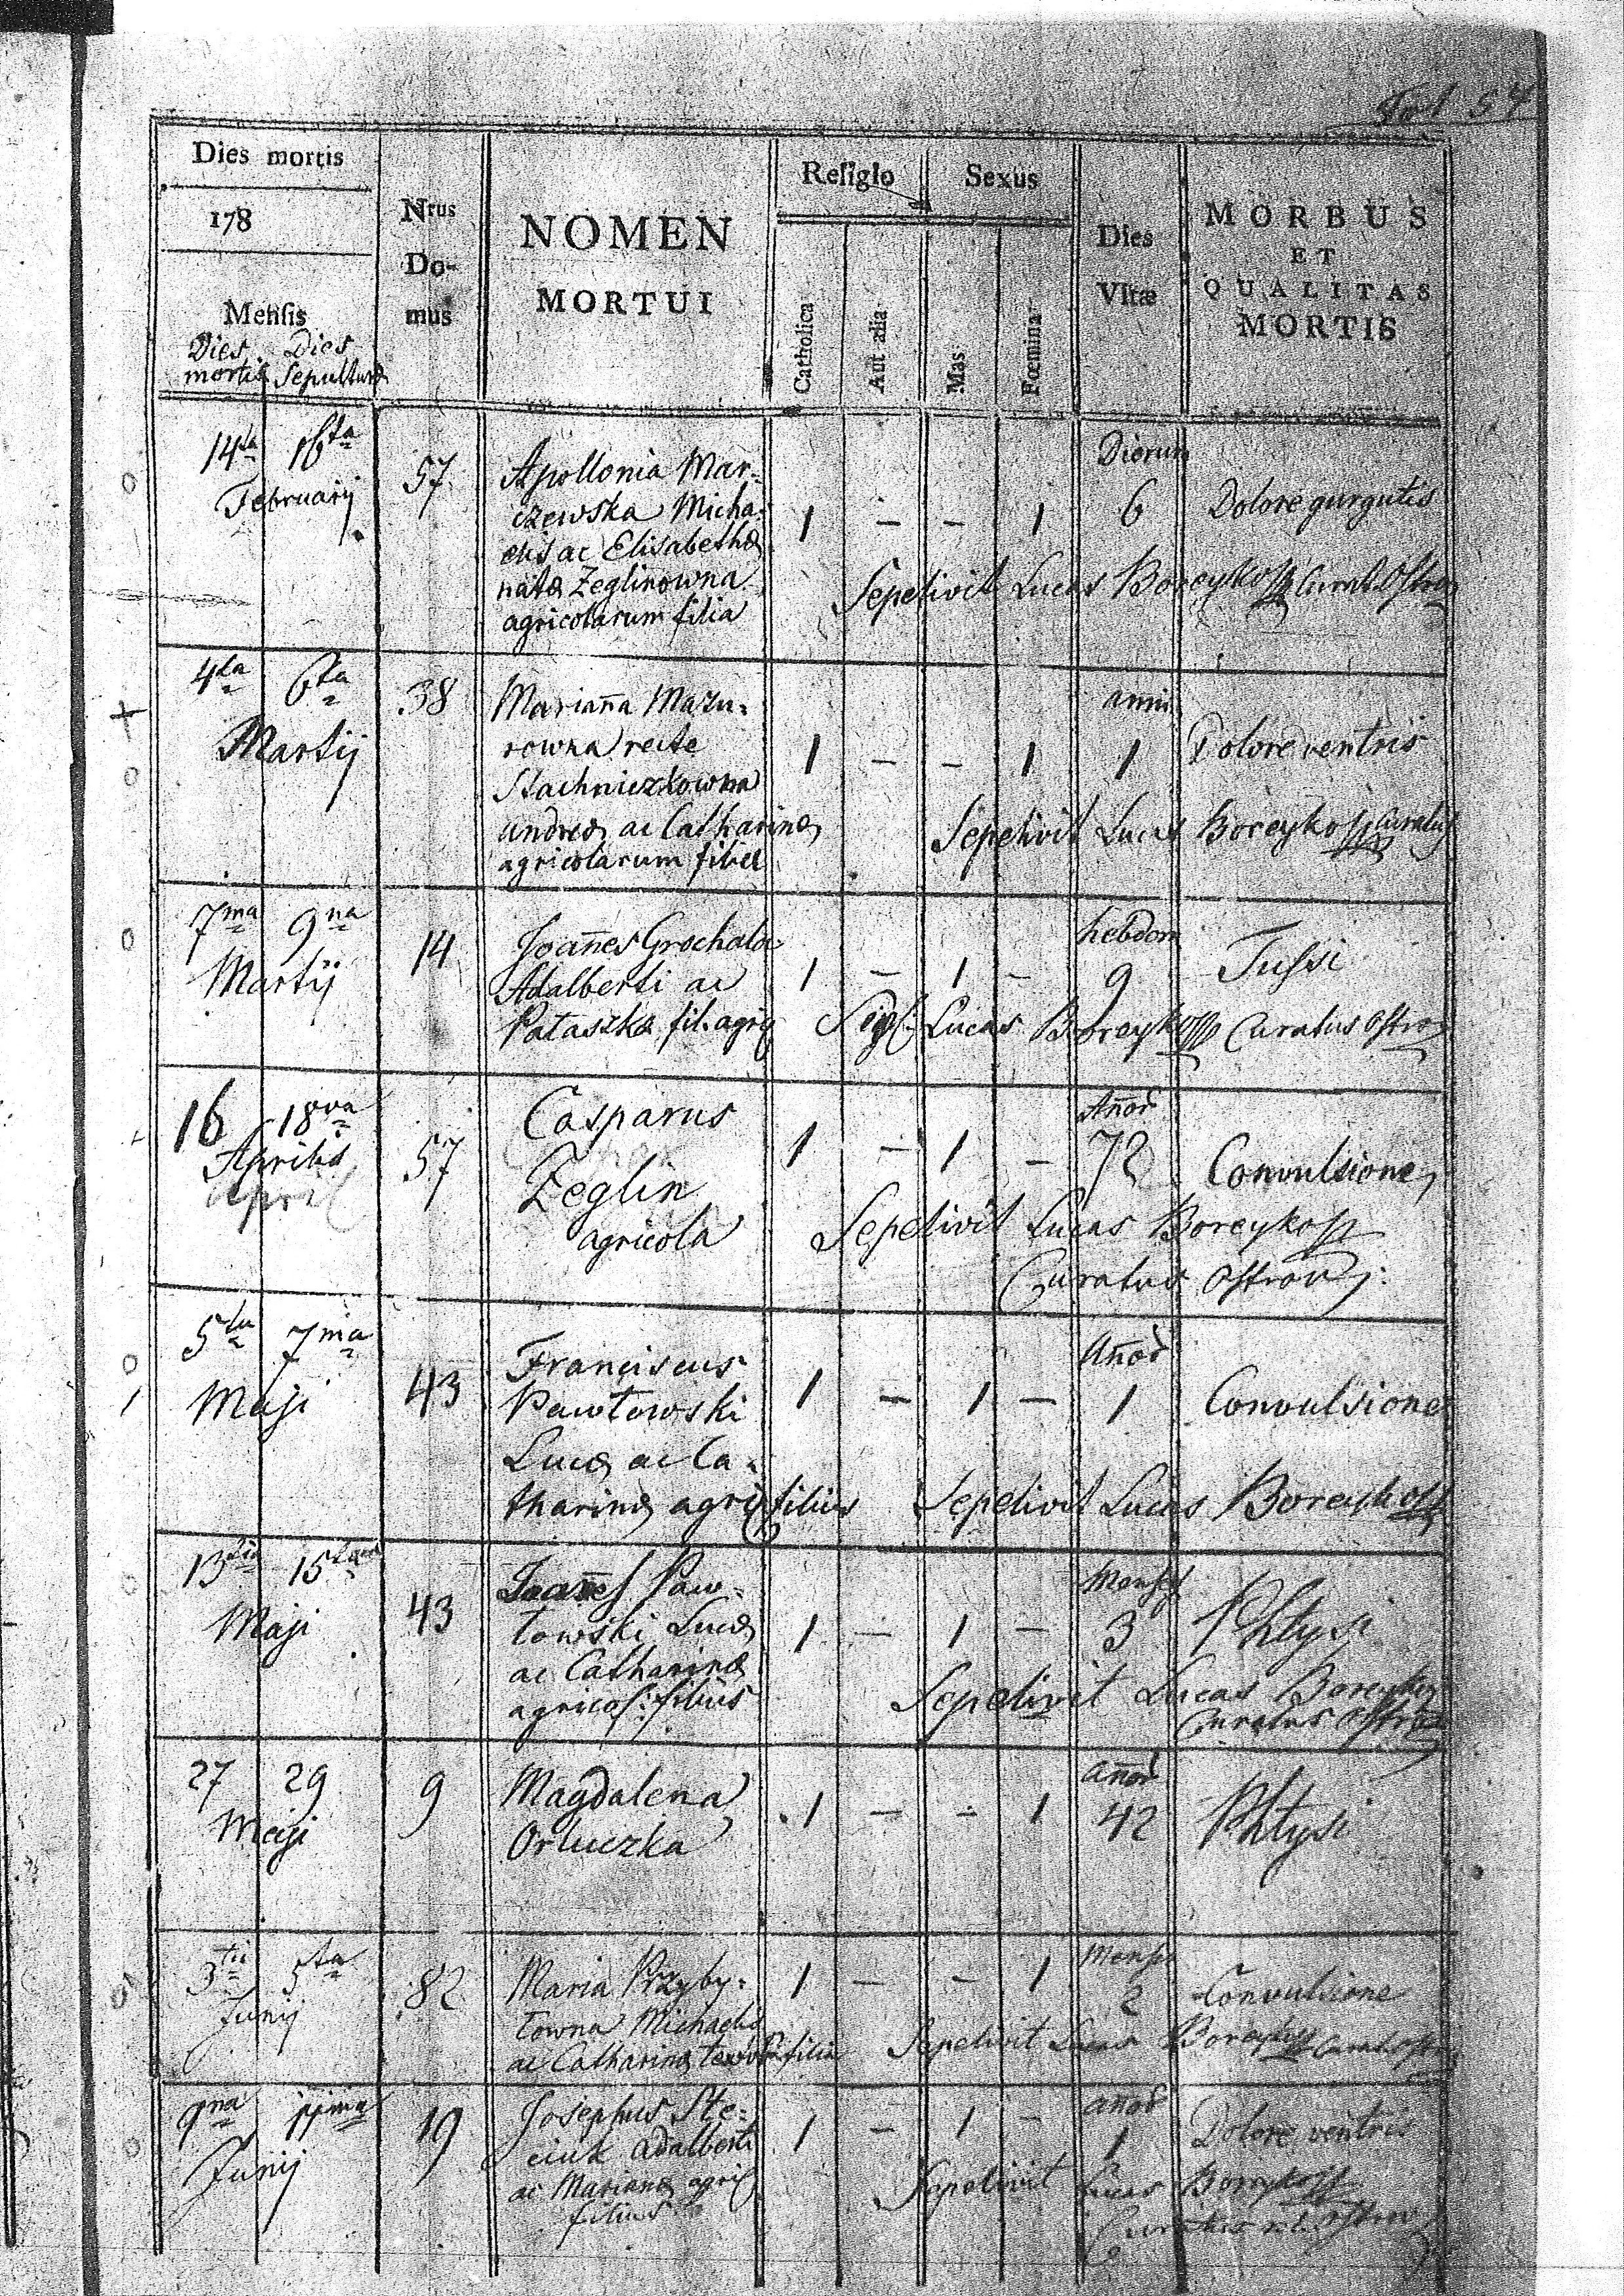 Fol 54
Dies mortis
178
Mensis
Dies mortis
Dies Sepulturæ
Nrus Do-
mus
NOMEN
MORTUI
Religio
Catholica
Aut alia
Sexus
Mas
Fœmina
Dies
Vitæ
MORBUS
ET
QUALITAS
MORTIS
14ta 16ta
Februarij
57
Apollonia Mar=
czewska Micha=
elis ac Elisabethæ
natæ Zeglinowna
agricolarum filia
1 – – 1
Dierum
6
Dolore gurgutis
Sepelivit Lucas Boreyko Curat Ostro
4ta 6ta
Martij
38
Marianna Mazu=
rowna recte
Stachniczkowna
Andreæ ac Catharinæ
agricolarum filia
1 – – 1
anni
1
Dolore ventris
Sepelivit Lucas Boreyko Curatus
7ma 9na
Martij
14
Joannes Grochala
Adalberti ac
Pataszka fil. agric
1 – 1 –
hebdom
9
Tussi
Sepel: Lucas Boreyko Curatus Ostro
16 18va
Aprilis
April
57
Casparus
Zeglin
agricola
1 – 1 –
Añor
72
Convulsione
Sepelivit Lucas Boreyko
Curatus Ostrov:
5ta 7ma
Maji
43
Franciscus
Pawłowski
Lucæ ac Ca=
tharinæ agric filius
1 – 1 –
Añor
1
Convulsione
Sepelivit Lucas Boreyko
13tia 15ta
Maji
43
Joañes Paw=
łowski Lucæ
ac Catharinæ
agricol: filius
1 – 1 –
Menses
3
Phtysi
Sepelivit Lucas Boreyko
Curatus Ostro
27 29
Maji
9
Magdalena
Orluczka
1 – – 1
añor
42
Phtysi
3tia 5ta
Junij
82
Maria Przyby=
łowna Michaelis
ac Catharinæ filia
1 – – 1
Menses
2
Convulsione
Sepelivit Lucas Boreyko Curat Ostro
9na 11ma
Junij
19
Josephus Ste=
ciuk Adalberti
ac Marianæ agric
filius
1 – 1 –
añor
1
Dolore ventris
Sepelivit Lucas Boreyko
Curatus Ostrov